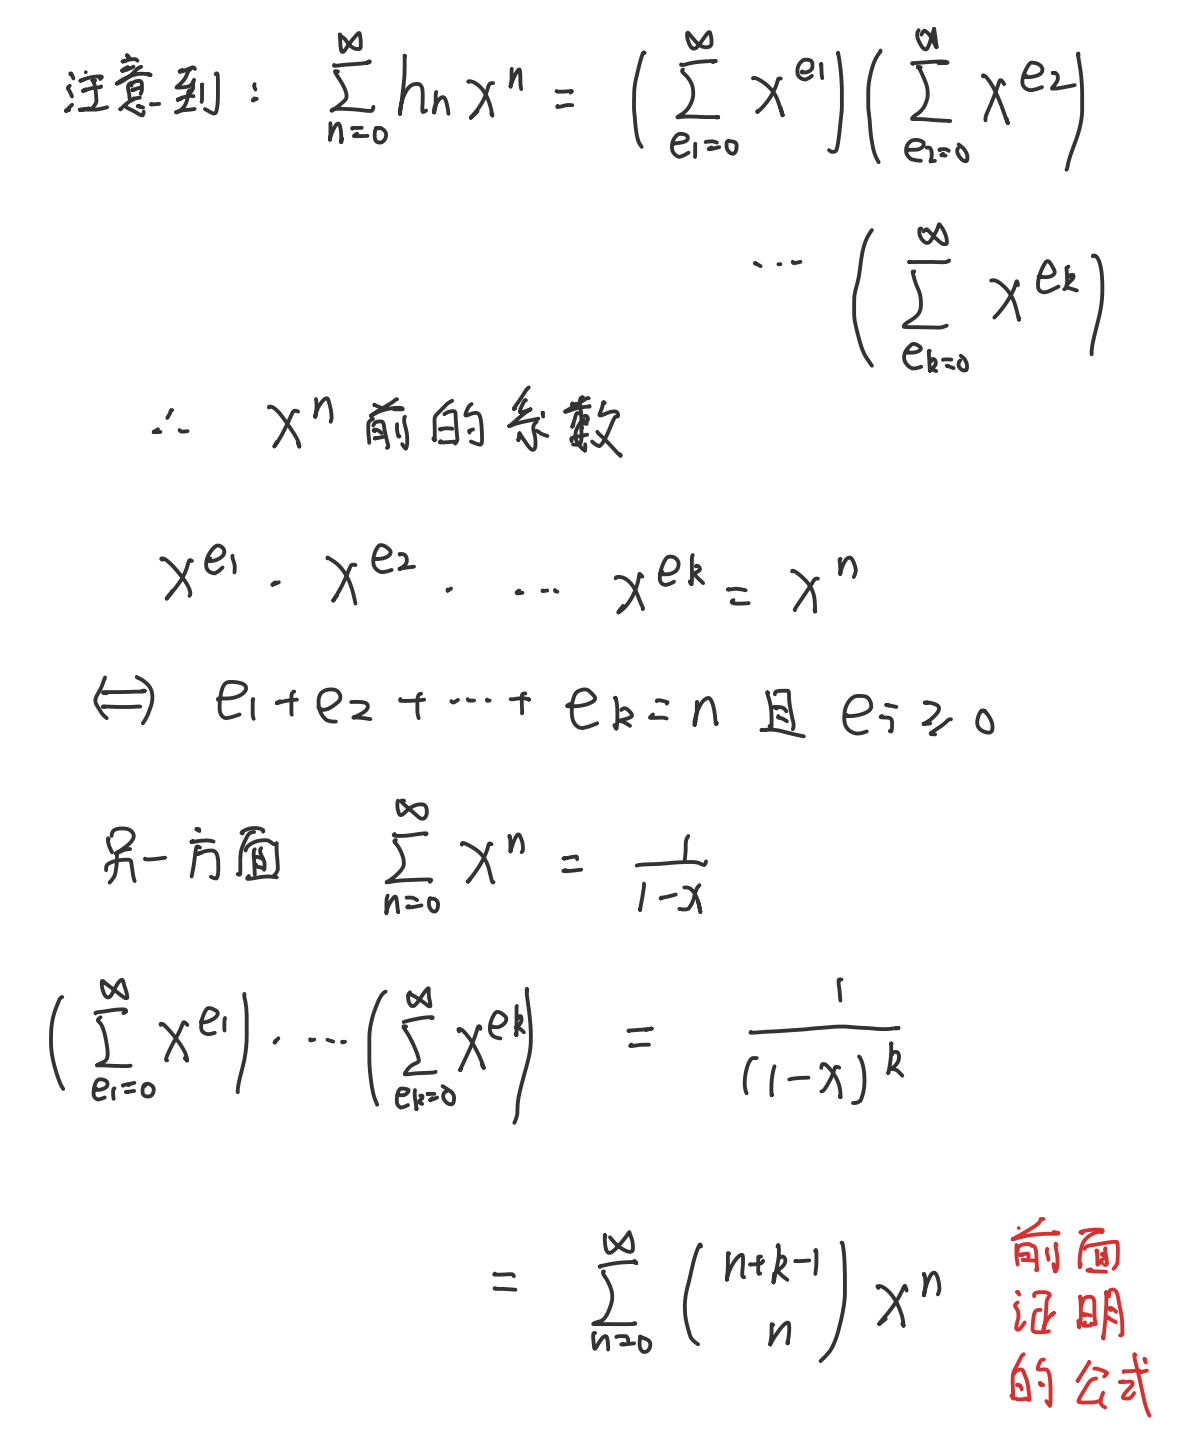 注意到: \sum_{n=0}^{∞} h_n x^n = (\sum_{e_1=0}^{∞} x^{e_1})(\sum_{e_2=0}^{∞} x^{e_2})
… (\sum_{e_k=0}^{∞} x^{e_k})
∴ x^n 前的系数
x^{e_1} · x^{e_2} · … x^{e_k} = x^n
⟺ e_1 + e_2 + … + e_k = n 且 e_i ≥ 0
另一方面 \sum_{n=0}^{∞} x^n = \frac{1}{1-x}
(\sum_{e_1=0}^{∞} x^{e_1}) · … (\sum_{e_k=0}^{∞} x^{e_k}) = \frac{1}{(1-x)^k}
= \sum_{n=0}^{∞} \binom{n+k-1}{n} x^n
前面
证明
的公式